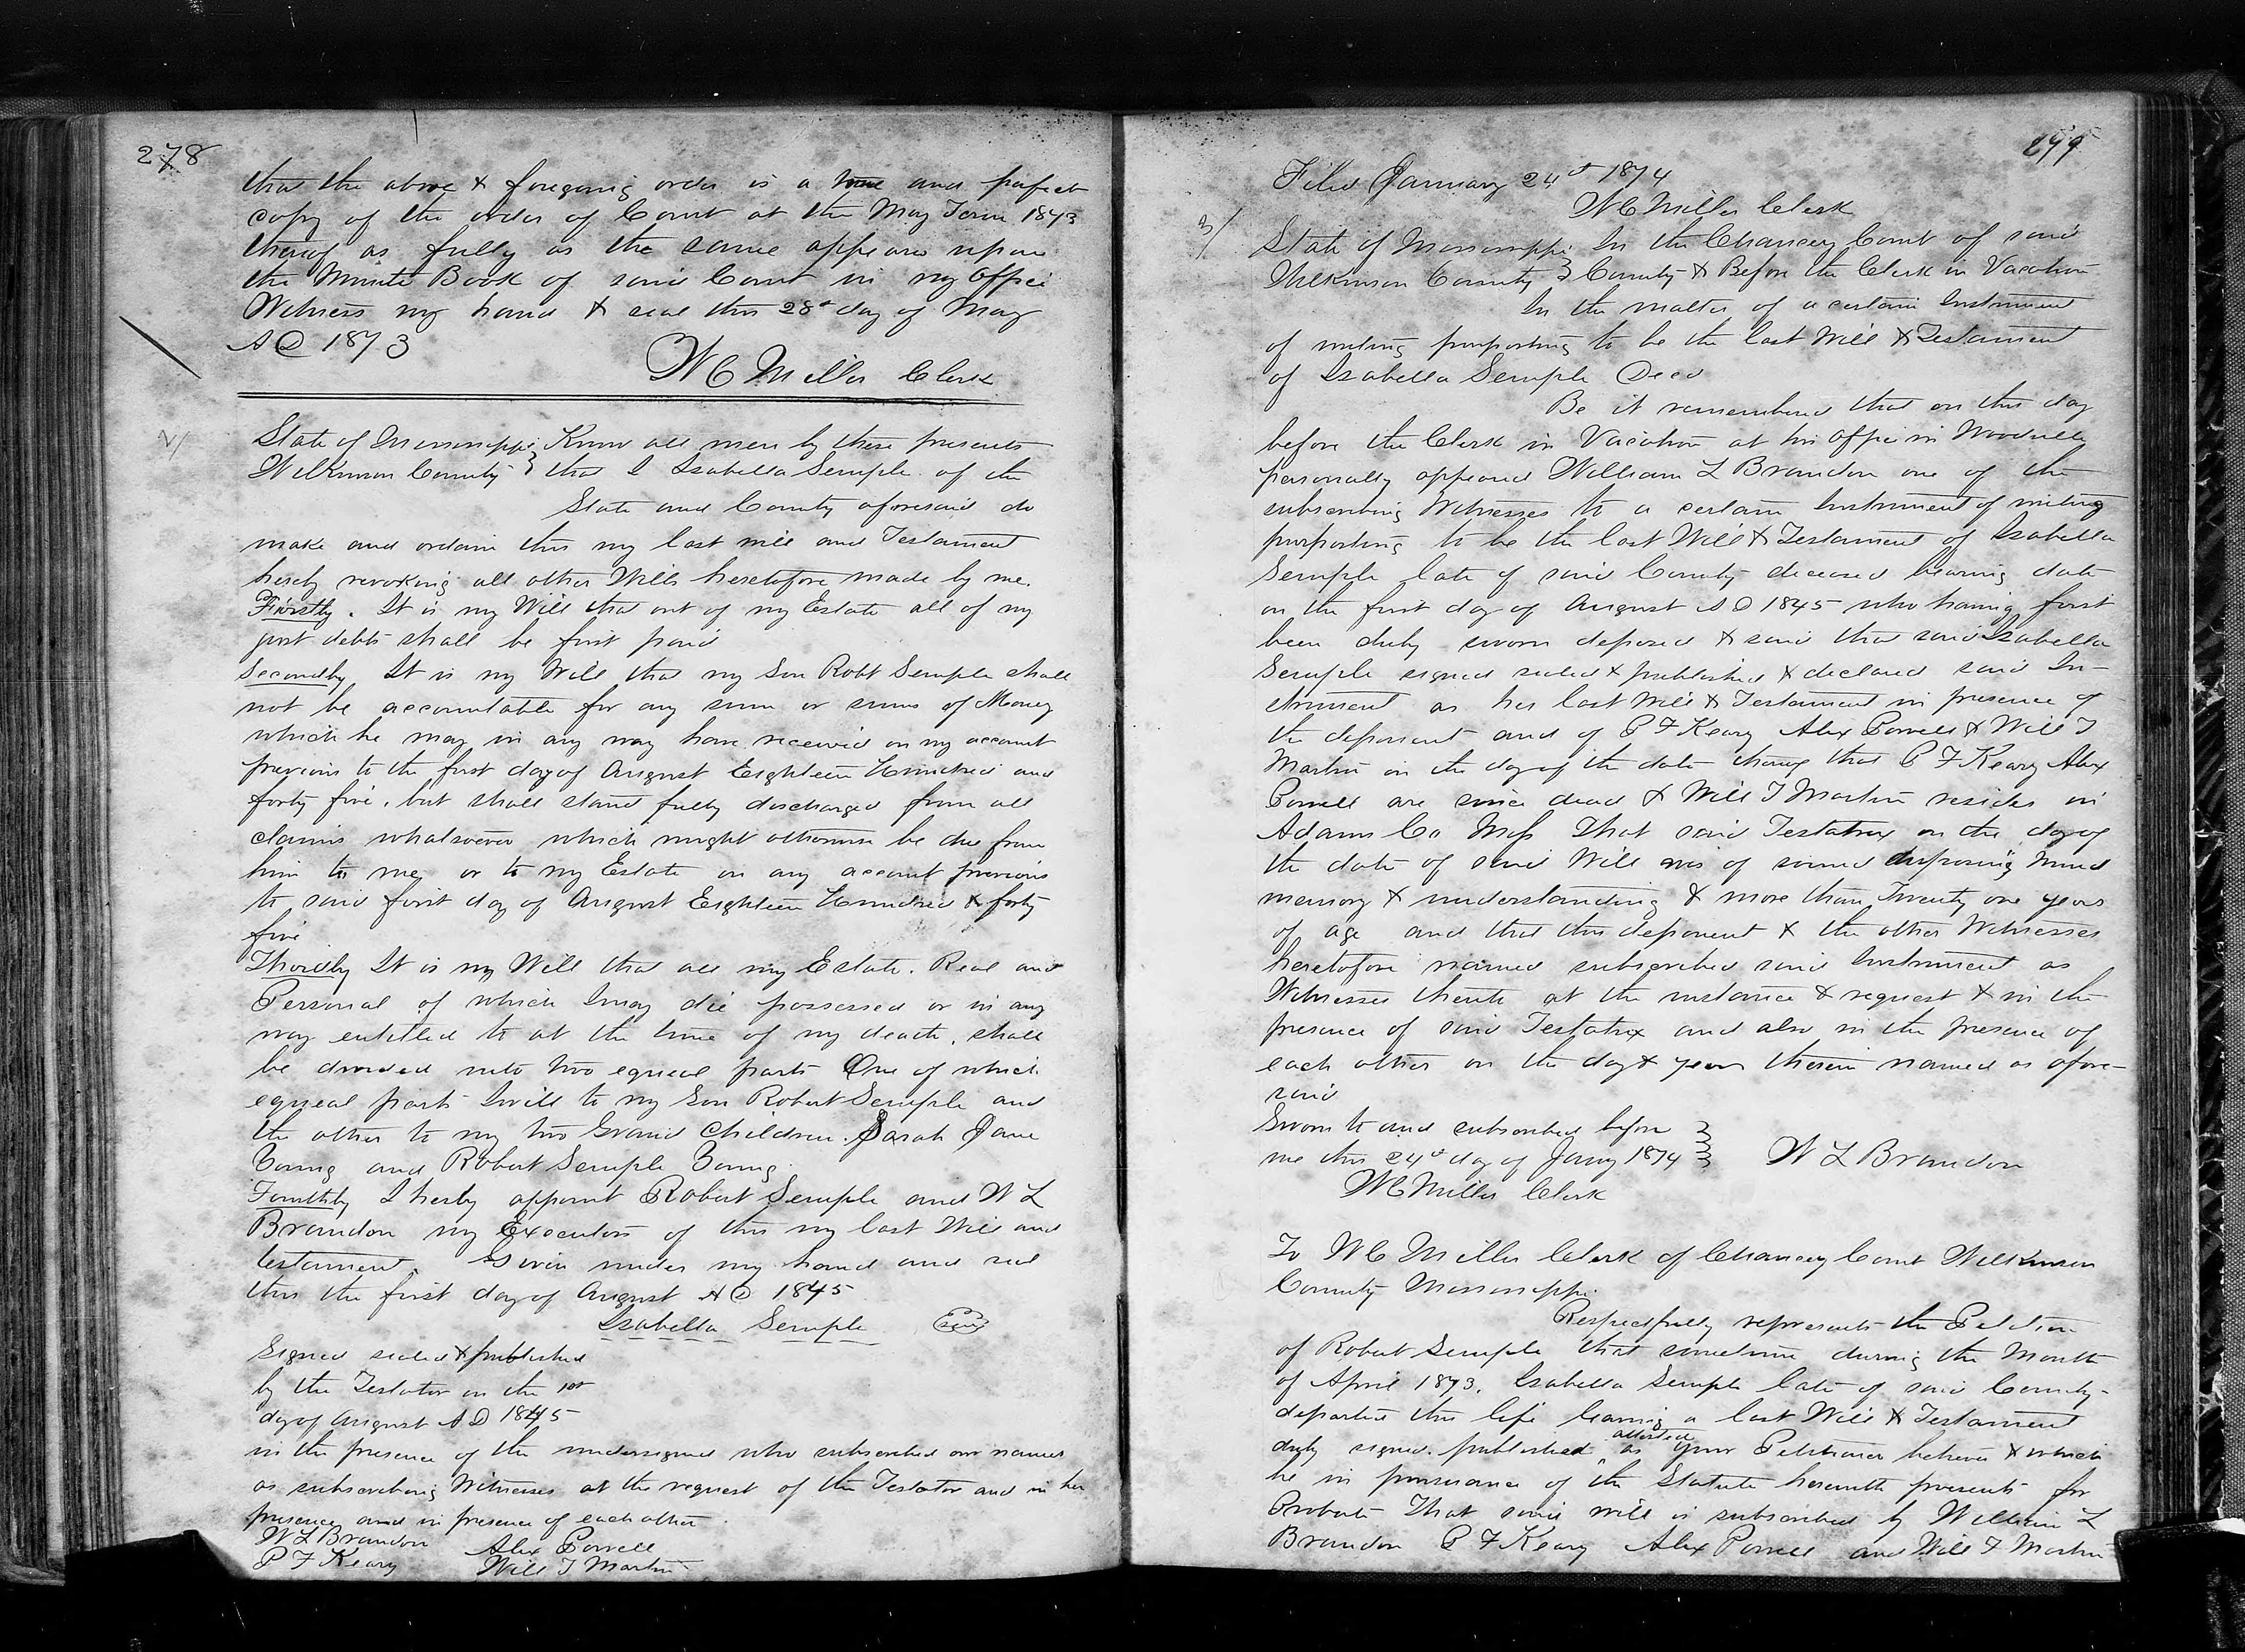 278
that the above & foregoing order is a true and perfect
copy of the order of Court at the May Term 1873
thereof as fully as the same appears upon
the Minute Book of said Court in my office
Witness my hand & seal this 28th day of May
AD 1873
W C Miller Clerk
2/
State of Mississippi } Know all men by these presents
Wilkinson County } that I Isabella Semple of the
State and County aforesaid do
make and ordain this my last will and Testament
hereby revoking all other Wills heretofore made by me.
Firstly. It is my Will that out of my Estate all of my
just debts shall be first paid
Secondly It is my Will that my Son Robt Semple shall
not be accountable for any sum or sums of Money
which he may in any way have received on my account
previous to the first day of August Eighteen Hundred and
forty five, but shall stand fully discharged from all
claims whatsoever which might otherwise be due from
him to me, or to my Estate on any account previous
to said first day of August Eighteen Hundred & forty
five
Thirdly It is my Will that all my Estate. Real and
Personal of which I may die possessed or in any
way entitled to at the time of my death, shall
be divided into two equal parts One of which
equal parts I will to my Son Robert Semple and
the other to my two Grand Children. Sarah Jane
Young and Robert Semple Young.
Fourthly I herby appoint Robert Semple and W L
Brandon my Executors of this my last Will and
testament. Given under my hand and seal
this the first day of August AD 1845
Isabella Semple (Seal)
Signed sealed & published
by the Testator on the 1st
day of August AD 1845
in the presence of the undersigned who subscribed our names
as subscribing Witnesses at the request of the Testator and in her
presence and in presence of each other.
W L Brandon Alex Powell
P F Keary Will T Martin
Filed January 24th 1874
W C Miller Clerk
3/
State of Mississippi } In the Chancery Court of said
Wilkinson County } County & Before the Clerk in Vacation
In the matter of a certain Instrument
of writing purporting to be the last Will & Testament
of Isabella Semple Decd
Be it remembered that on this day
before the Clerk in Vacation at his office in Woodville
personally appeared William L Brandon one of the
subscribing Witnesses to a certain Instrument of writing
purporting to be the last Will & Testament of Isabella
Semple late of said County deceased bearing date
on the first day of August AD 1845 who having first
been duly sworn deposed & said that said Isabella
Semple signed sealed & published & declared said In-
strument as her last Will & Testament in presence of
the deponent and of P F Keary Alex Powell & Will T
Martin on the day of the date thereof that P F Keary Alex
Powell are since dead & Will T Martin resides in
Adams Co Miss That said Testatrix on the day of
the date of said Will was of sound disposing mind
memory & understanding & more than Twenty one years
of age and that this deponent & the other Witnesses
heretofore named subscribed said Instrument as
Witnesses thereto at the instance & request & in the
presence of said Testatrix and also in the presence of
each other on the day & year therein named as afore-
said
Sworn to and subscribed before }
me this 24th day of Jany 1874 } W L Brandon
W C Miller Clerk
To W C Miller Clerk of Chancery Court Wilkinson
County Mississippi.
Respectfully represents the Petition
of Robert Semple that sometime during the Month
of April 1873, Isabella Semple late of said County-
departed this life leaving a last Will & Testament
duly signed. published attested as your Petitioner believes & which
he in pursuance of the Statute herewith presents for
Probate That said will is subscribed by William L
Brandon P F Keary Alex Powell and Will T Martin